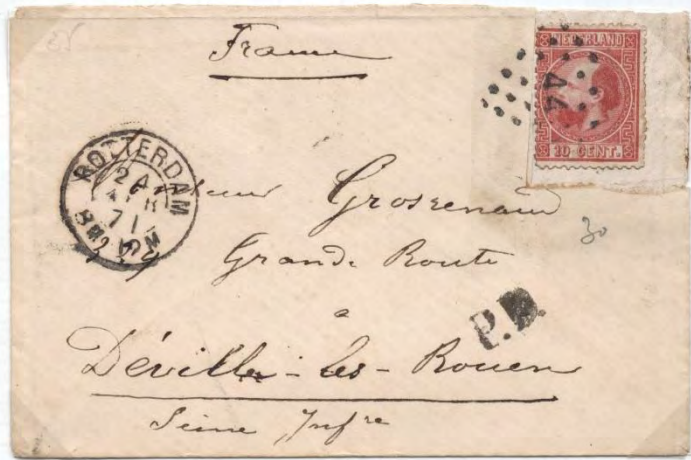 France
NEDERLAND
44
10 CENT.
ROTTERDAM
24
APR
71
Monsieur Grossenaud
Grande Route
30
a
P.D.
Déville-les-Rouen
Seine Infre